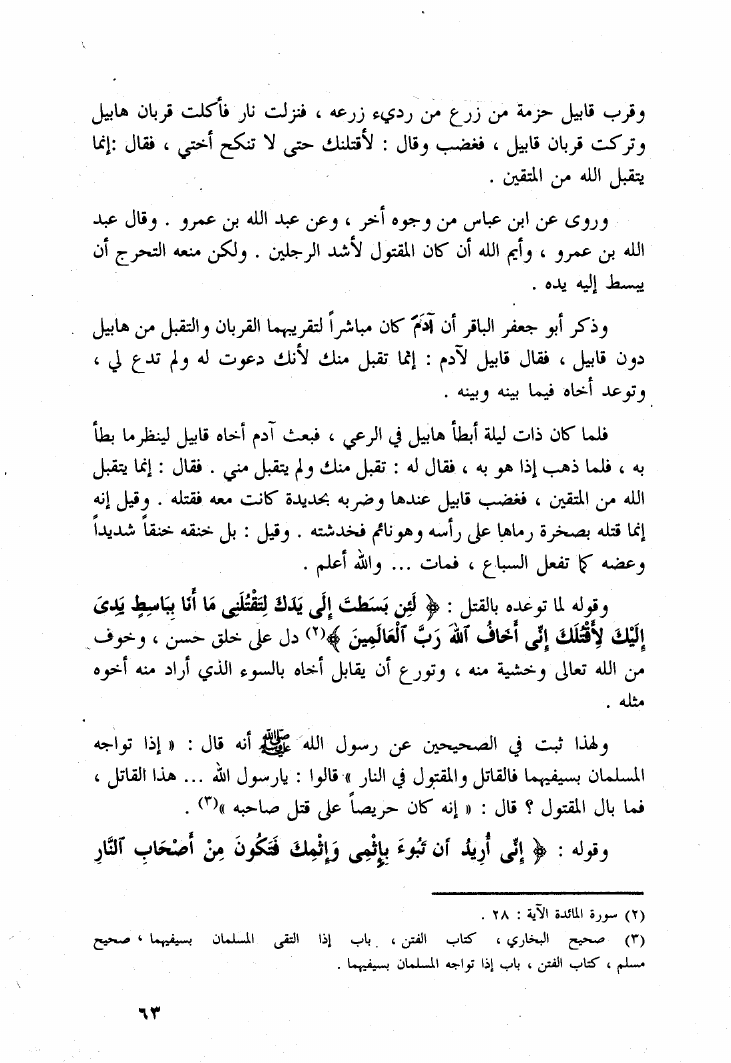 وقرب قابيل حزمة من زرع من رديء زرعه ، فنزلت نار فأكلت قربان هابيل
وتركت قربان قابيل ، فغضب وقال : لأقتلنك حتى لا تنكح أختي ، فقال :إنما
يتقبل الله من المتقين .
وروى عن ابن عباس من وجوه أخر ، وعن عبد الله بن عمرو . وقال عبد
الله بن عمرو ، وأيم الله أن كان المقتول لأشد الرجلين . ولكن منعه التحرج أن
يبسط إليه يده .
وذكر أبو جعفر الباقر أن آدم كان مباشراً لتقريبهما القربان والتقبل من هابيل
دون قابيل ، فقال قابيل لآدم : إنما تقبل منك لأنك دعوت له ولم تدع لي ،
وتوعد أخاه فيما بينه وبينه .
فلما كان ذات ليلة أبطأ هابيل في الرعي ، فبعث آدم أخاه قابيل لينظر ما بطأ
به ، فلما ذهب إذا هو به ، فقال له : تقبل منك ولم يتقبل مني . فقال : إنما يتقبل
الله من المتقين ، فغضب قابيل عندها وضربه بحديدة كانت معه فقتله . وقيل إنه
إنما قتله بصخرة رماها على رأسه وهو نائم فخدشته . وقيل : بل خنقه خنقاً شديداً
وعضه كما تفعل السباع ، فمات ... والله أعلم .
وقوله لما توعده بالقتل : ﴿ لَئِن بَسَطتَ إِلَى يَدَكَ لِتَقْتُلَنِى مَا أَنَا بِبَاسِطٍ يَدِىَ
إِلَيْكَ لِأَقْتُلَكَ إِنِّى أَخَافُ ٱللهَ رَبَّ ٱلْعَالَمِينَ ﴾(٢) دل على خلق حسن ، وخوف
من الله تعالى وخشية منه ، وتورع أن يقابل أخاه بالسوء الذي أراد منه أخوه
مثله .
ولهذا ثبت في الصحيحين عن رسول الله ﷺ أنه قال : « إذا تواجه
المسلمان بسيفيهما فالقاتل والمقتول في النار » قالوا : يارسول الله ... هذا القاتل ،
فما بال المقتول ؟ قال : « إنه كان حريصاً على قتل صاحبه »(٣) .
وقوله : ﴿ إِنِّى أُرِيدُ أن تَبُوءَ بِإِثْمِى وَإِثْمِكَ فَتَكُونَ مِنْ أَصْحَابِ ٱلنَّارِ
(٢) سورة المائدة الآية : ٢٨ .
(٣) صحيح البخاري ، كتاب الفتن ، باب إذا التقى المسلمان بسيفيهما ، صحيح
مسلم ، كتاب الفتن ، باب إذا تواجه المسلمان بسيفيهما .
٦٣